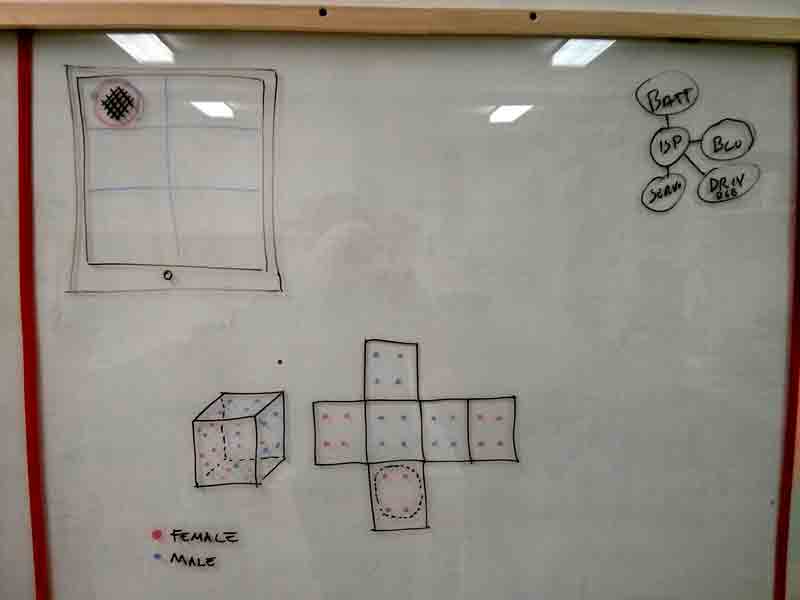 BATT
ISP
BLU
SERVO
DRIV
FEMALE
MALE